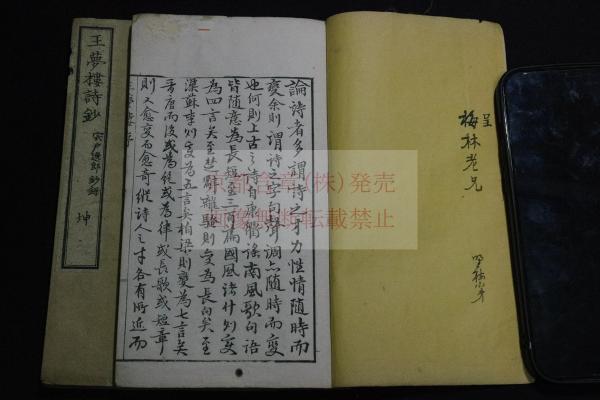 呈
梅林老兄
論詩者多謂詩之才力性情隨時而
變余則謂詩之字句聲調亦隨時而變
也何則上古之詩自康衢謠南風歌句語
皆隨意為長短至三百篇國風諸什則變
為四言矣至楚辭離騷則變為長句矣至
漢蘇李則變為五言矣柏梁則變為七言矣
晉唐而後或為徒或為律或長歌或短章
則又愈變而愈奇縱詩人之才各有所近而
王夢樓詩鈔
坤
京都合章(株)発売
画像無断転載禁止